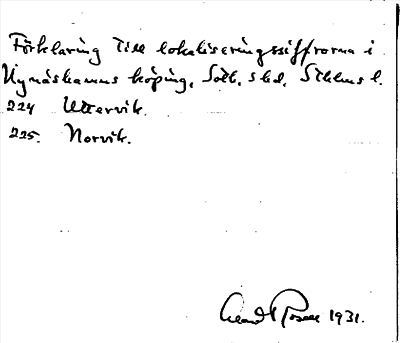 Förklaring till lokaliseringssiffrorna i
Nynäshamns köping, Sotl. skd, Sthlms l.
224 Uttervik.
225. Norvik.
1931.